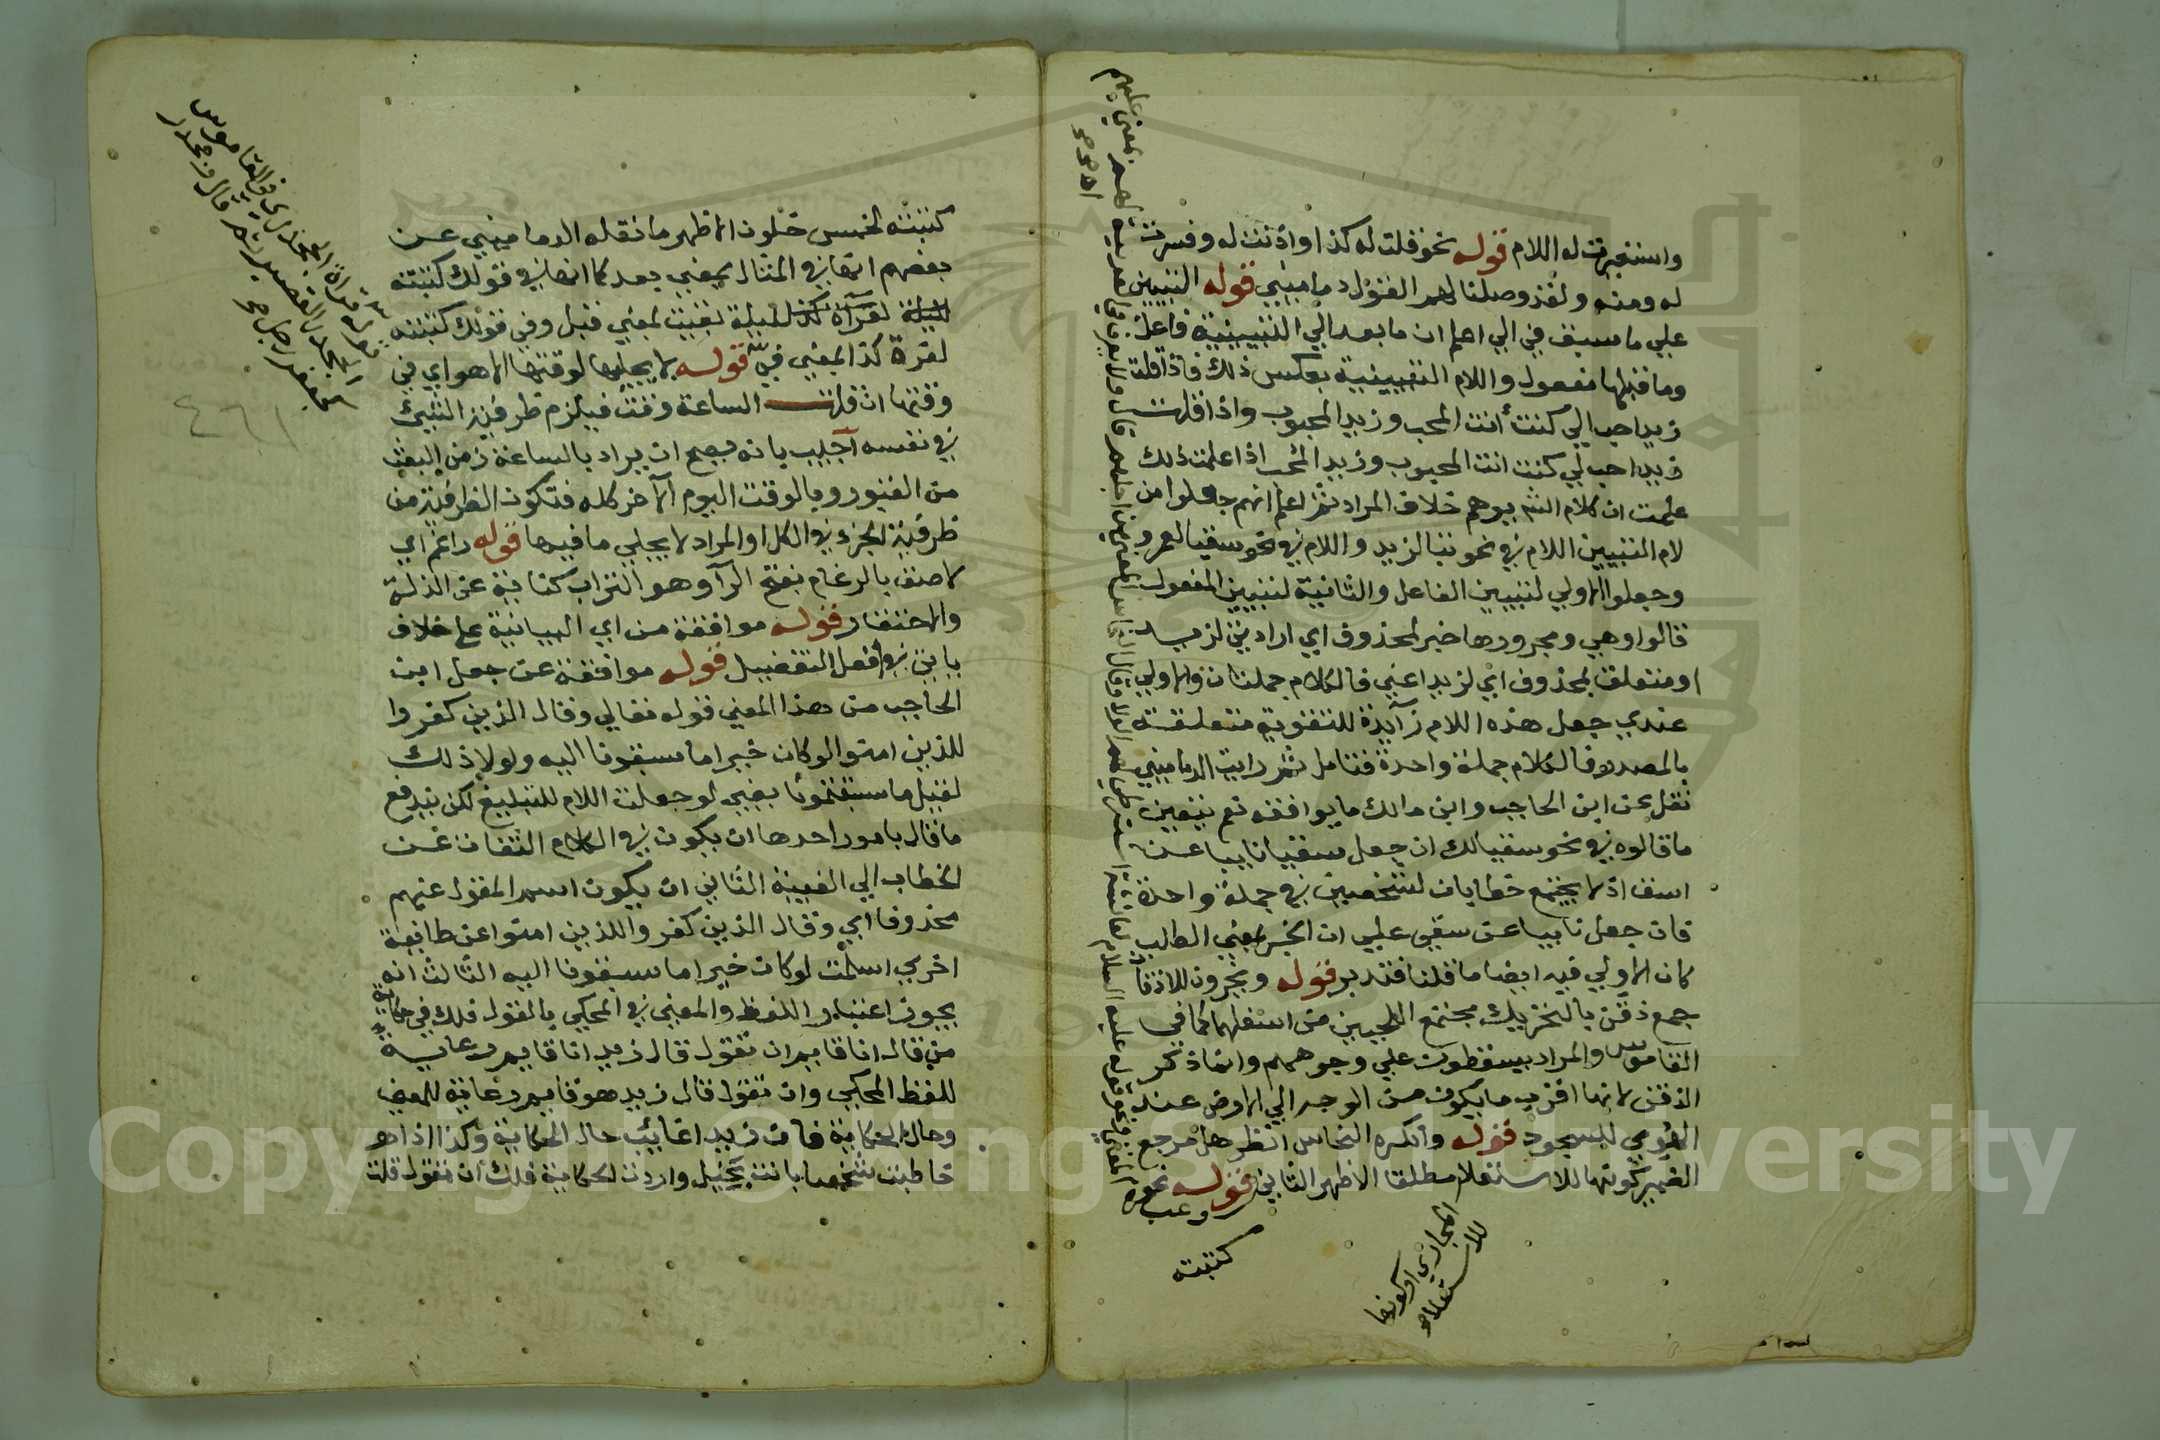 واستغفرت له اللام قوله نحو قلت له كذا واذنت له وفسرت
له ومنه ولقد وصلنا لهم القول دماميني قوله التبيين
علي ما سبق في الي اعلم ان ما بعد الي التبيينية فاعل
وما قبلها مفعول واللام التبيينية بعكس ذلك فاذا قلت
زيد احب الي كنت أنت المحب وزيد المحبوب واذا قلت
زيد احب لي كنت انت المحبوب وزيد المحب اذا علمت ذلك
علمت ان كلام الشم يوهم خلاف المراد ثم اعلم انهم جعلوا من
لام التبيين اللام في نحو تبا لزيد واللام في نحو سقيا لعمرو
وجعلوا الاولي لتبيين الفاعل والثانية لتبيين المفعول
قالوا وهي ومجرورها خبر لمحذوف اي ارادتي لزيد
او متعلق بمحذوف اي لزيد اعني فالكلام جملتان والاولي
عندي جعل هذه اللام زآيدة للتقوية متعلقة
بالمصدر فالكلام جملة واحدة فتامل ثم رايت الدماميني
نقل عن ابن الحاجب وابن مالك ما يوافقه نعم يتعين
ما قالوه في نحو سقيا لك ان جعل سقيا نايبا عن
اسق اذ لا يجتمع خطابان لشخصين في جملة واحدة
فان جعل نايبا عن سقي علي ان الخبر بمعني الطلب
كان الاولي فيه ايضا ما قلنا فتدبر قوله ويخرون للاذقان
جمع ذقن بالتحريك مجتمع اللحيين من اسفلهما كما في
القاموس والمراد يسقطون علي وجوههم وانما ذكر
الذقن لانها اقرب ما يكون من الوجه الي الارض عند
الهوي للسجود قوله وانكره النحاس انظر هل مرجع
الضمير كونها للاستعلا مطلقا الاظهر الثاني قوله نحو
المجازي او كونها
للاستعلا صح
كتبته
كتبته لخمس خلون الاظهر ما نقله الدماميني عن
بعضهم انها في المثال بمعني بعد كما انها في قولك كتبته
لليلة بقيت بمعني قبل وفي قولك كتبته
لغرة كذا بمعني في قوله لا يجليها لوقتها الا هو اي في
وقتها ان قلت الساعة وقت فيلزم ظرفية الشئ
في نفسه اجيب بانه يصح ان يراد بالساعة زمن البعث
من القبور وبالوقت اليوم الآخر كله فتكون الظرفية من
ظرفية الجزء في الكل او المراد لا يجلي ما فيها قوله راغم اي
لاصق بالرغام بفتح الرآ وهو التراب كناية عن الذلة
والاحتقار قوله موافقة من اي البيانية علي خلاف
ياتي في افعل التفضيل قوله موافقة عن جعل ابن
الحاجب من هذا المعني قوله تعالي وقال الذين كفروا
للذين امنوا لو كان خيرا ما سبقونا اليه ولولا ذلك
لقيل ما سبقتمونا يعني لو جعلت اللام للتبليغ لكن يندفع
ما قال بامور احدها ان يكون في الكلام التفات عن
الخطاب الي الغيبة الثاني ان يكون اسم المقول عنهم
محذوفا اي وقال الذين كفروا للذين امنوا عن طايفة
اخري اسلمت لو كان خيرا ما سبقونا اليه الثالث انه
يجوز اعتبار اللفظ والمعني في المحكي بالقول فلك في حكاية
من قال انا قايم ان تقول قال زيد انا قايم رعاية
للفظ المحكي وان تقول قال زيد هو قايم رعاية للمعني
وحال الحكاية فان زيدا غايب حال الحكاية وكذا اذا
خاطبت شخصا بانت بخيل واردت الحكاية فلك ان تقول قلت
٤٦١
Copyright © King Saud University